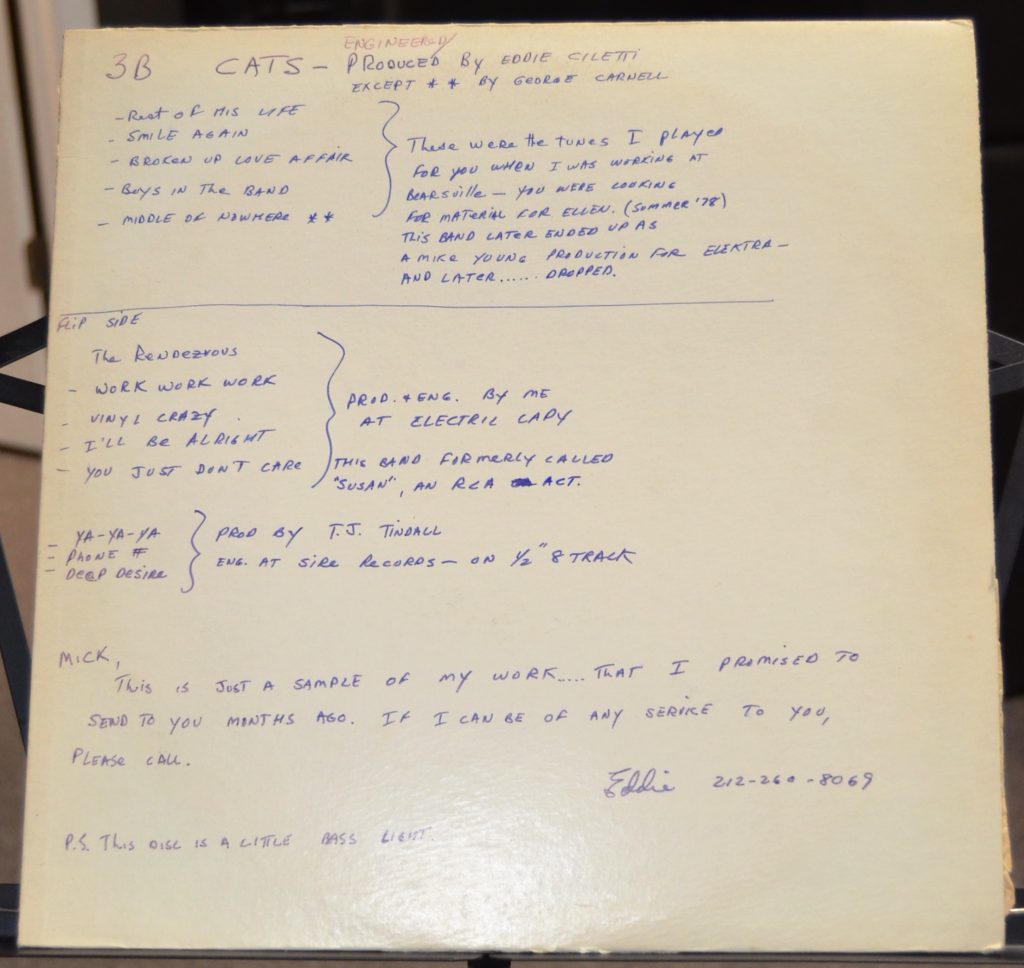 ENGINEERED/
3B CATS - PRODUCED BY EDDIE CILETTI
EXCEPT ** BY GEORGE CARNELL
- REST OF HIS LIFE
- SMILE AGAIN
- BROKEN UP LOVE AFFAIR
- BOYS IN THE BAND
- MIDDLE OF NOWHERE **
THESE WERE THE TUNES I PLAYED
FOR YOU WHEN I WAS WORKING AT
BEARSVILLE - YOU WERE LOOKING
FOR MATERIAL FOR ELLEN. (SUMMER '78)
THIS BAND LATER ENDED UP AS
A MIKE YOUNG PRODUCTION FOR ELEKTRA -
AND LATER...... DROPPED.
FLIP SIDE
THE RENDEZVOUS
- WORK WORK WORK
- VINYL CRAZY
- I'LL BE ALRIGHT
- YOU JUST DON'T CARE
PROD. + ENG. BY ME
AT ELECTRIC LADY
THIS BAND FORMERLY CALLED
"SUSAN", AN RCA ACT.
- YA-YA-YA
- PHONE #
- DEEP DESIRE
PROD BY T.J. TINDALL
ENG. AT SIRE RECORDS - ON 1/2" 8 TRACK
MICK,
THIS IS JUST A SAMPLE OF MY WORK..... THAT I PROMISED TO
SEND TO YOU MONTHS AGO. IF I CAN BE OF ANY SERVICE TO YOU,
PLEASE CALL.
Eddie 212-260-8069
P.S. THIS DISC IS A LITTLE BASS LIGHT.